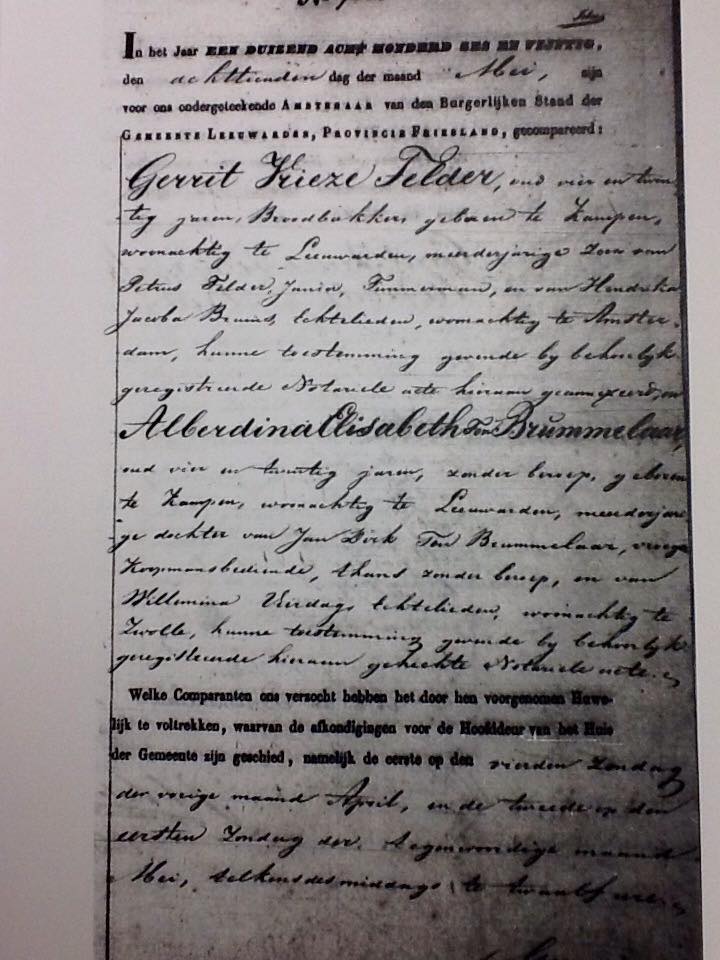 In het Jaar EEN DUIZEND ACHT HONDERD ZES EN VIJFTIG,
den achttienden dag der maand Mei, zijn
voor ons ondergeteekende AMBTENAAR van den Burgerlijken Stand der
GEMEENTE LEEUWARDEN, PROVINCIE FRIESLAND, gecompareerd:
Gerrit Frieze Felder, oud vier en twin-
tig jaren, Broodbakker, geboren te Kampen,
woonachtig te Leeuwarden, meerderjarige zoon van
Petrus Felder, Junior, Timmerman, en van Hendrika
Jacoba Bruins, Echtelieden, woonachtig te Amster-
dam, hunne toestemming gevende by behoorlyk
geregistreerde Notariele acte hieraan geannexeerd, en
Alberdina Elisabeth Ten Brummelaar,
oud vier en twintig jaren, zonder beroep, geboren
te Kampen, woonachtig te Leeuwarden, meerderjari-
ge dochter van Jan Dirk Ten Brummelaar, vroeger
Koopmansbediende, thans zonder beroep, en van
Willemina Verdags Echtelieden, woonachtig te
Zwolle, hunne toestemming gevende by behoorlyk
geregistreerde hieraan gehechte Notariele acte.
Welke Comparanten ons verzocht hebben het door hen voorgenomen Huwe-
lijk te voltrekken, waarvan de afkondigingen voor de Hoofddeur van het Huis
der Gemeente zijn geschied, namelijk de eerste op den vierden Zondag
der vorige maand April, en de tweede op den
eersten Zondag der tegenwoordige maand
Mei, telkens des middags te twaalf uren